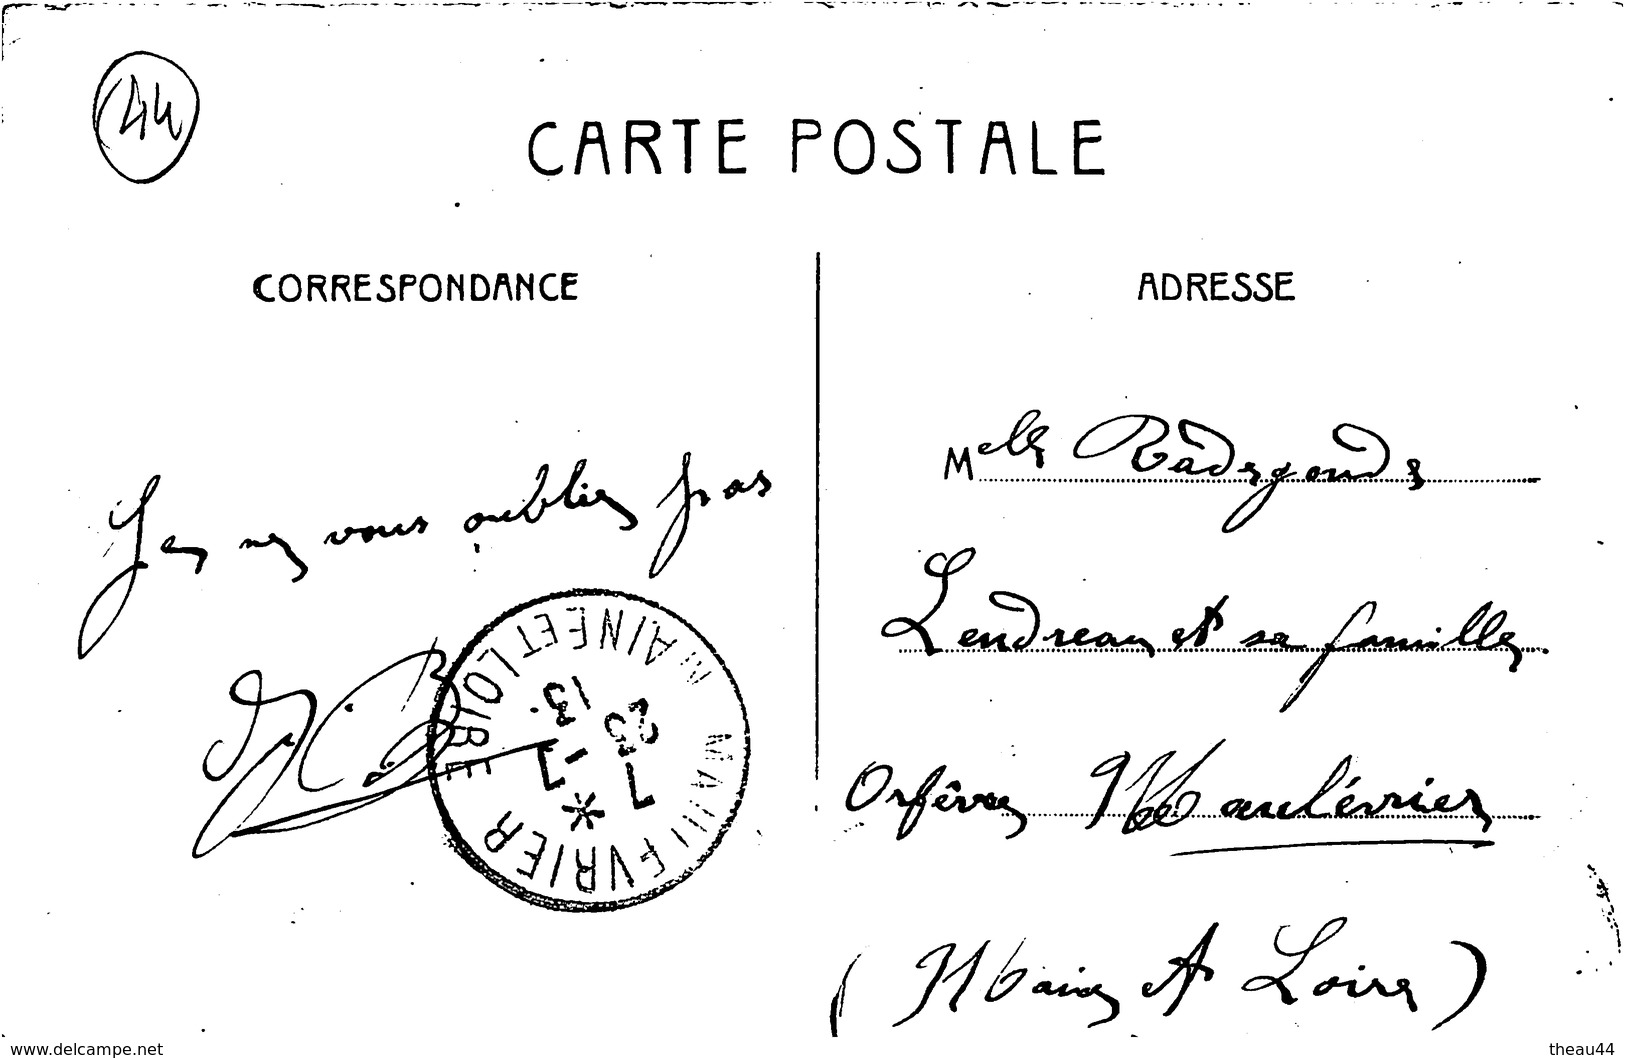 44
CARTE POSTALE
CORRESPONDANCE
Je ne vous oublie pas
MAINE ET LOIRE
7 25
7 - 13
MAULÉVRIER
ADRESSE
Melle Radegonde
Lendreau et sa famille
Orfèvre Maulévrier
(Maine et Loire)
www.delcampe.net
theau44